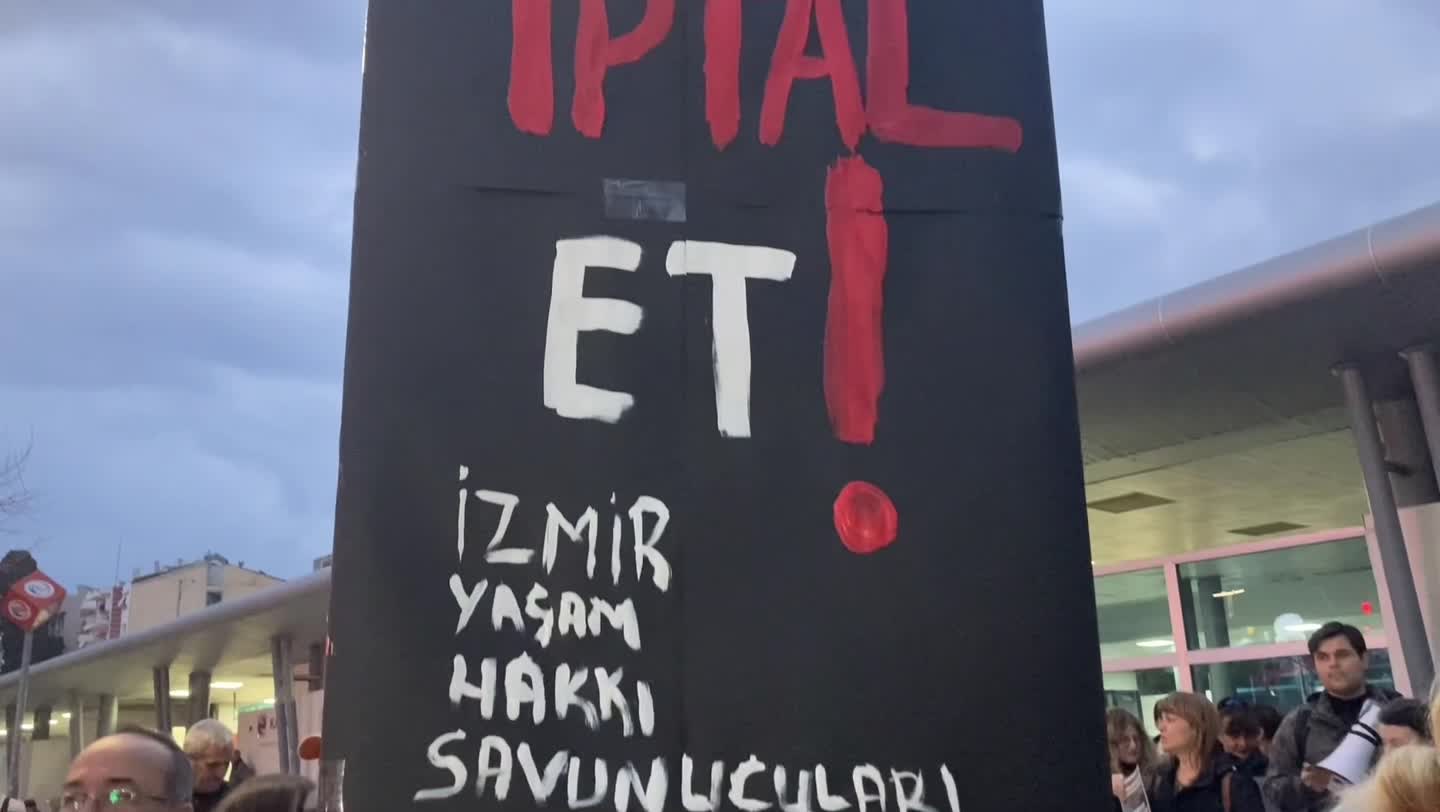 İPTAL
ET!
İZMİR
YAŞAM
HAKKI
SAVUNUCULARI